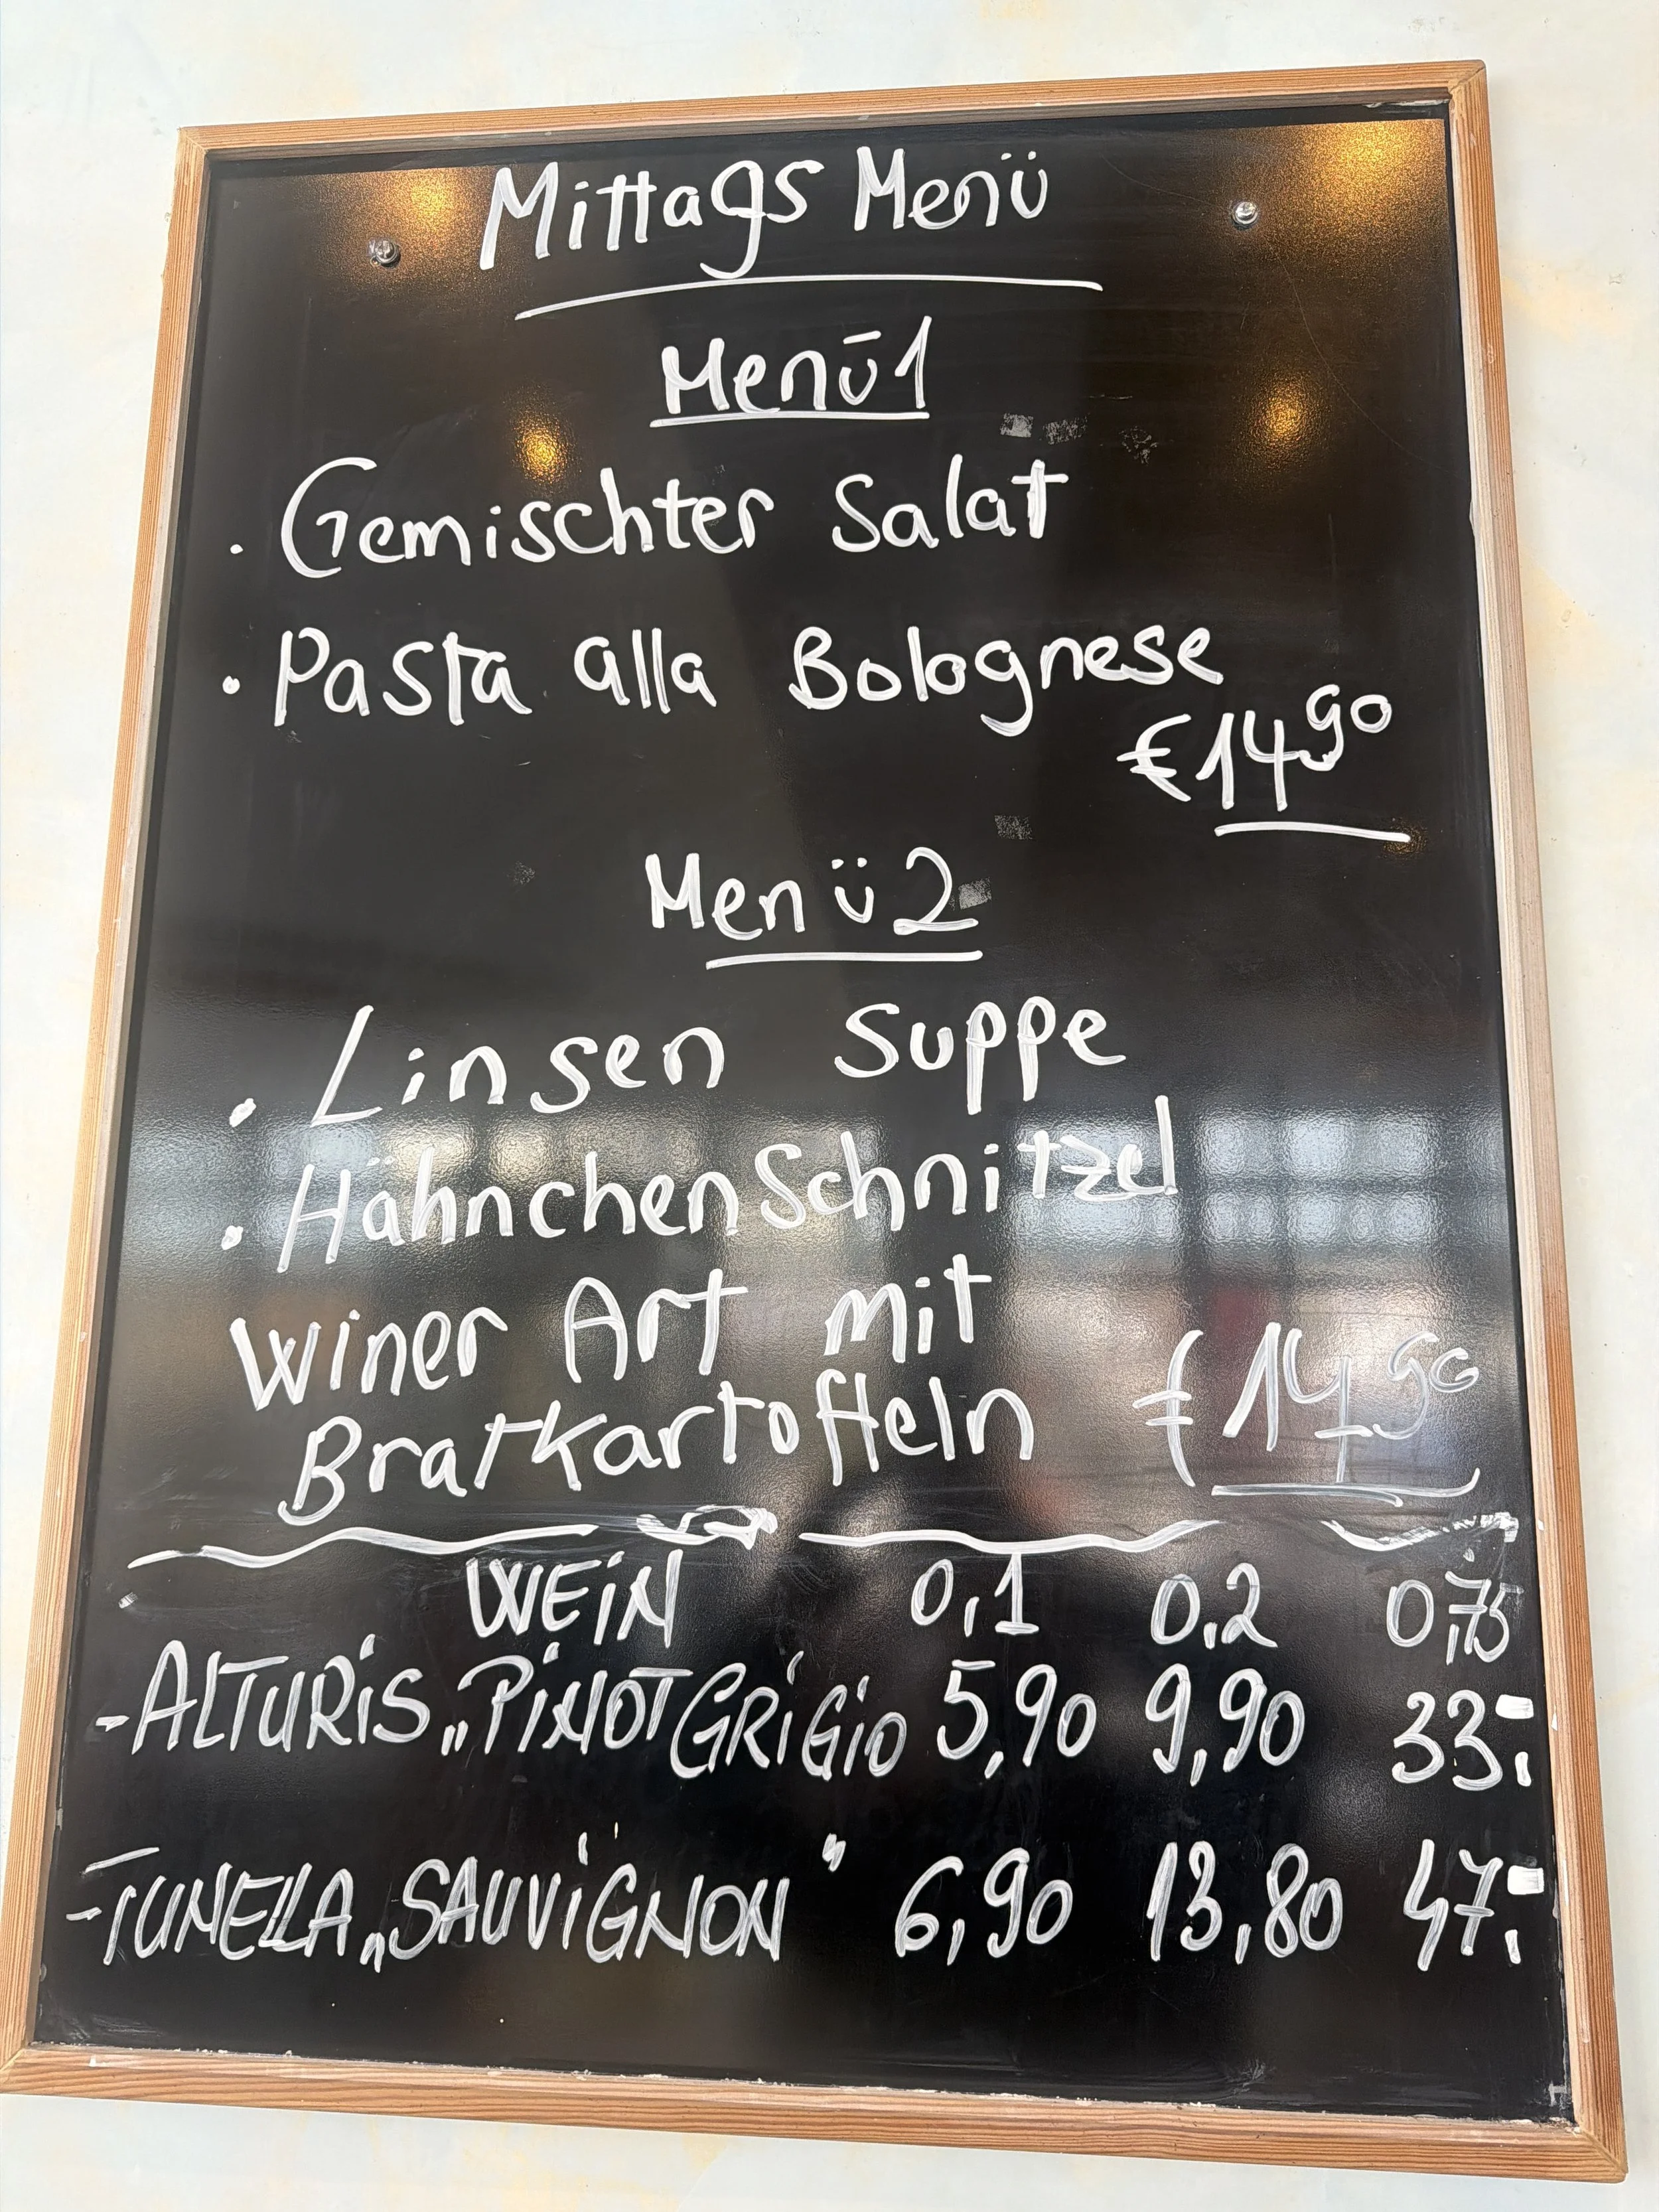 Mittags Menü
Menü1
· Gemischter Salat
· Pasta alla Bolognese
€14,90
Menü2
· Linsen Suppe
· HähnchenSchnitzel
Winer Art mit
Bratkartoffeln € 14,90
WEiN 0,1 0,2 0,75
-ALTURiS „PiNOT GRiGiO" 5,90 9,90 33,-
-TUNELLA „SAUViGNON" 6,90 13,80 47,-